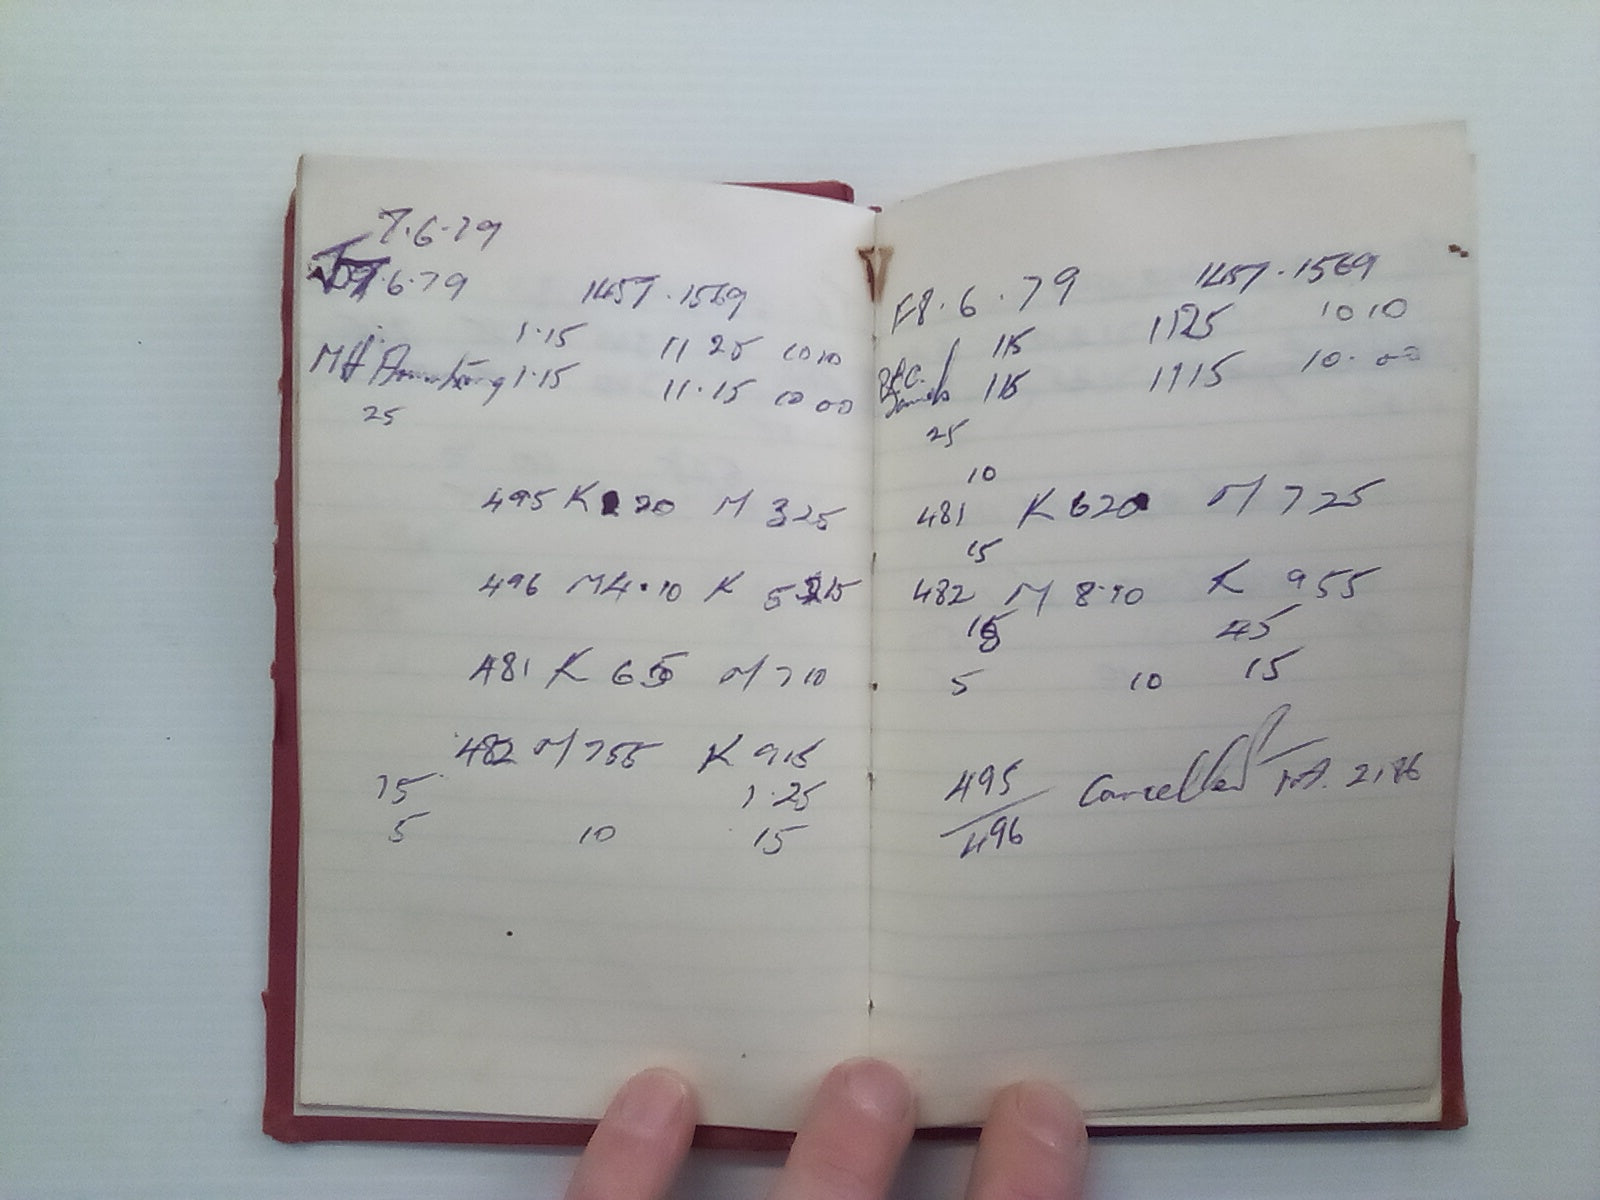 7.6.79
7.6.79 1457.1569
1.15 11 25 10 10
MH Armstrong 1.15 11.15 10 00
25
495 K 2 20 M 325
496 M4.10 K 5 15
481 K 6 M 710
482 M 755 K 915
15 1.25
5 10 15
F8.6.79 1457.1569
115 1125 10 10
115 1115 10.00
25
10
481 K 620 M 725
15
482 M 8.10 K 955
45
5 10 15
495 Cancelled
496